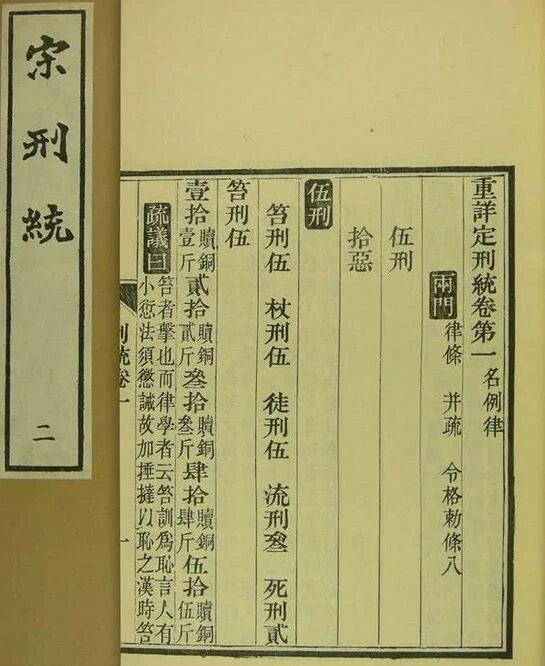 宋刑統
二
重詳定刑統卷第一 名例律
兩門 律條 并疏 令格勑條八
伍刑
拾惡
伍刑
笞刑伍 杖刑伍 徒刑伍 流刑叄 死刑貳
笞刑伍
壹拾贖銅壹斤 貳拾贖銅貳斤 叄拾贖銅叄斤 肆拾贖銅肆斤 伍拾贖銅伍斤
疏議曰 笞者擊也而律學者云笞訓爲恥言人有
小愆法須懲誡故加捶撻以恥之漢時笞
刑統卷一
一